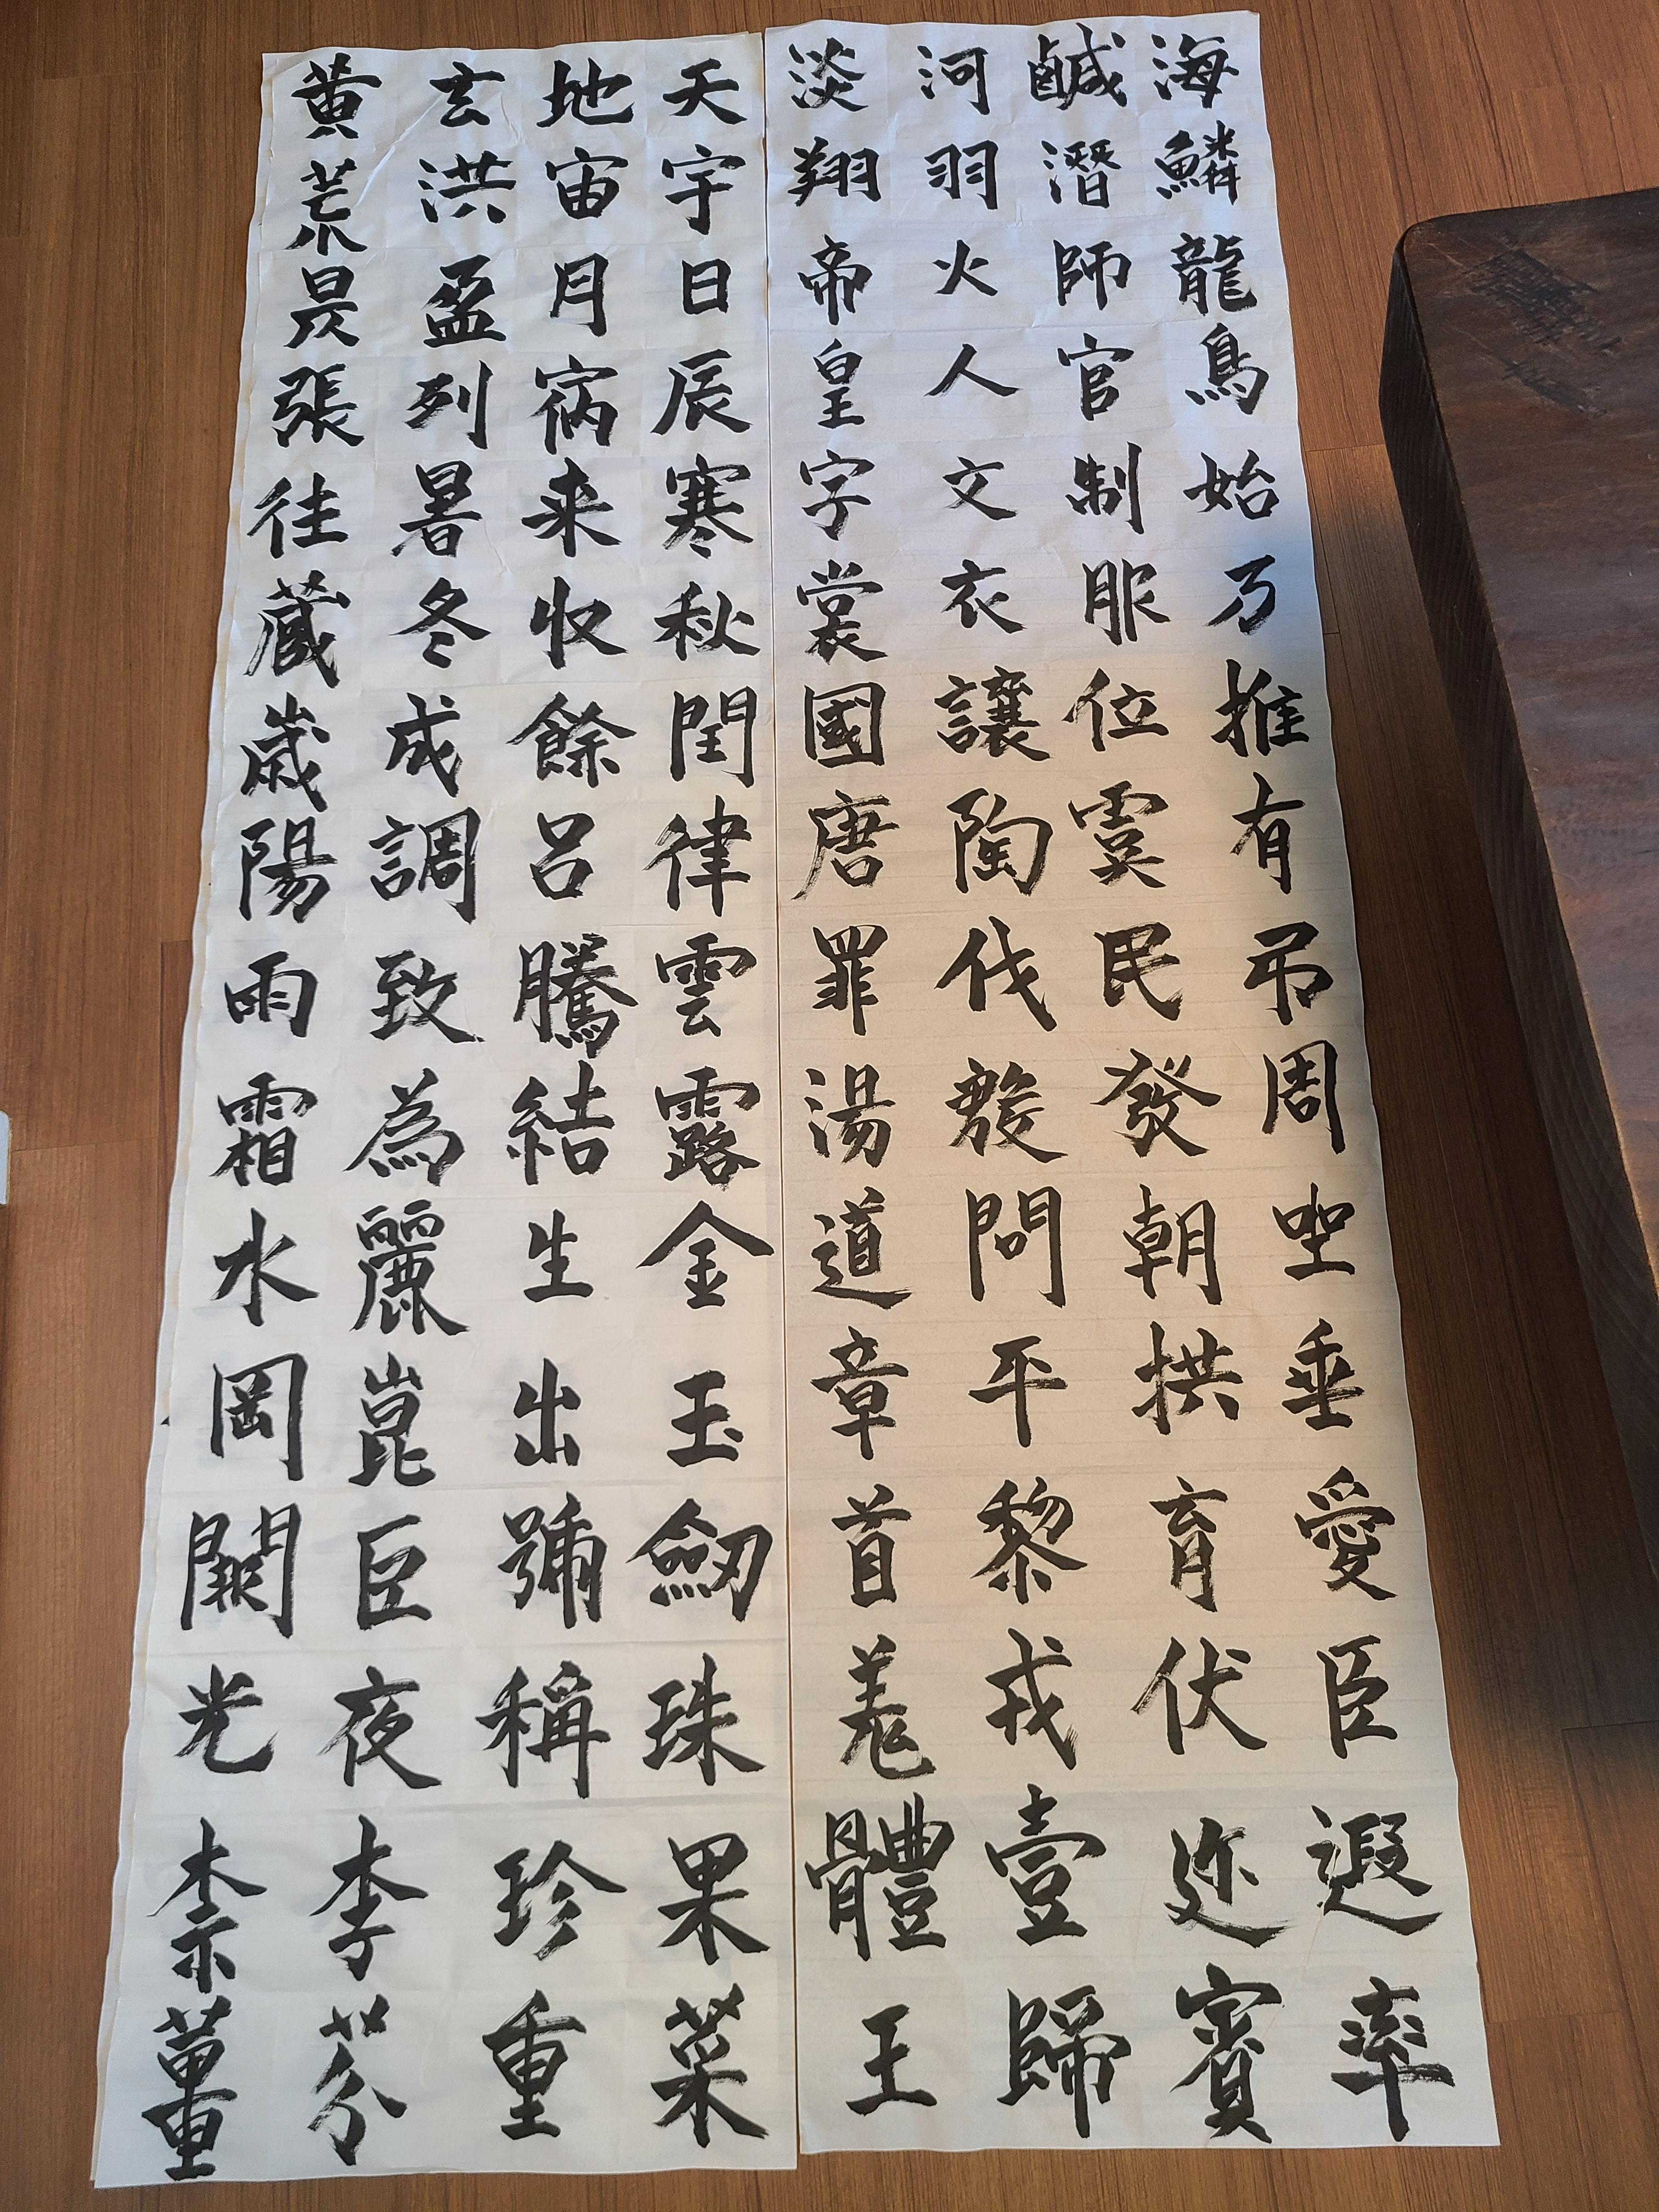 天地玄黄
宇宙洪荒
日月盈昃
辰宿列張
寒来暑往
秋收冬蔵
閏餘成歳
律呂調陽
雲騰致雨
露結為霜
金生麗水
玉出崑岡
劔號巨闕
珠稱夜光
果珍李柰
菜重芥薑
海鹹河淡
鱗潛羽翔
龍師火帝
鳥官人皇
始制文字
乃服衣裳
推位讓國
有虞陶唐
弔民伐罪
周發殷湯
坐朝問道
垂拱平章
愛育黎首
臣伏戎羌
遐迩壹體
率賓歸王